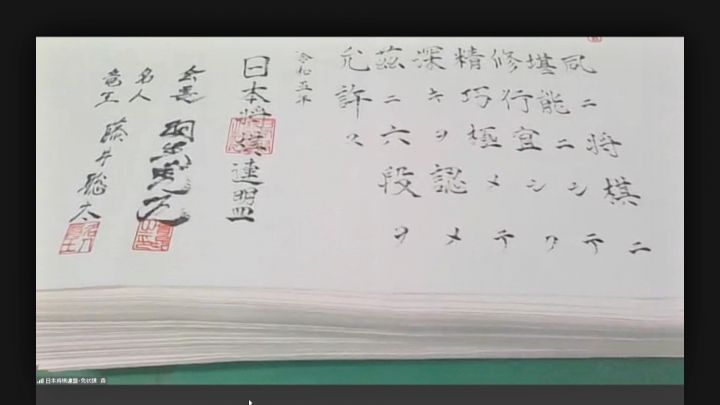 夙ニ将棋ニ
堪能ニシテ
修行宜シク
精巧極メテ
深キヲ認メ
茲ニ六段ヲ
允許ス
令和五年
日本将棋連盟
会長 羽生善治
名人
竜王 藤井聡太
日本将棋連盟・免状課